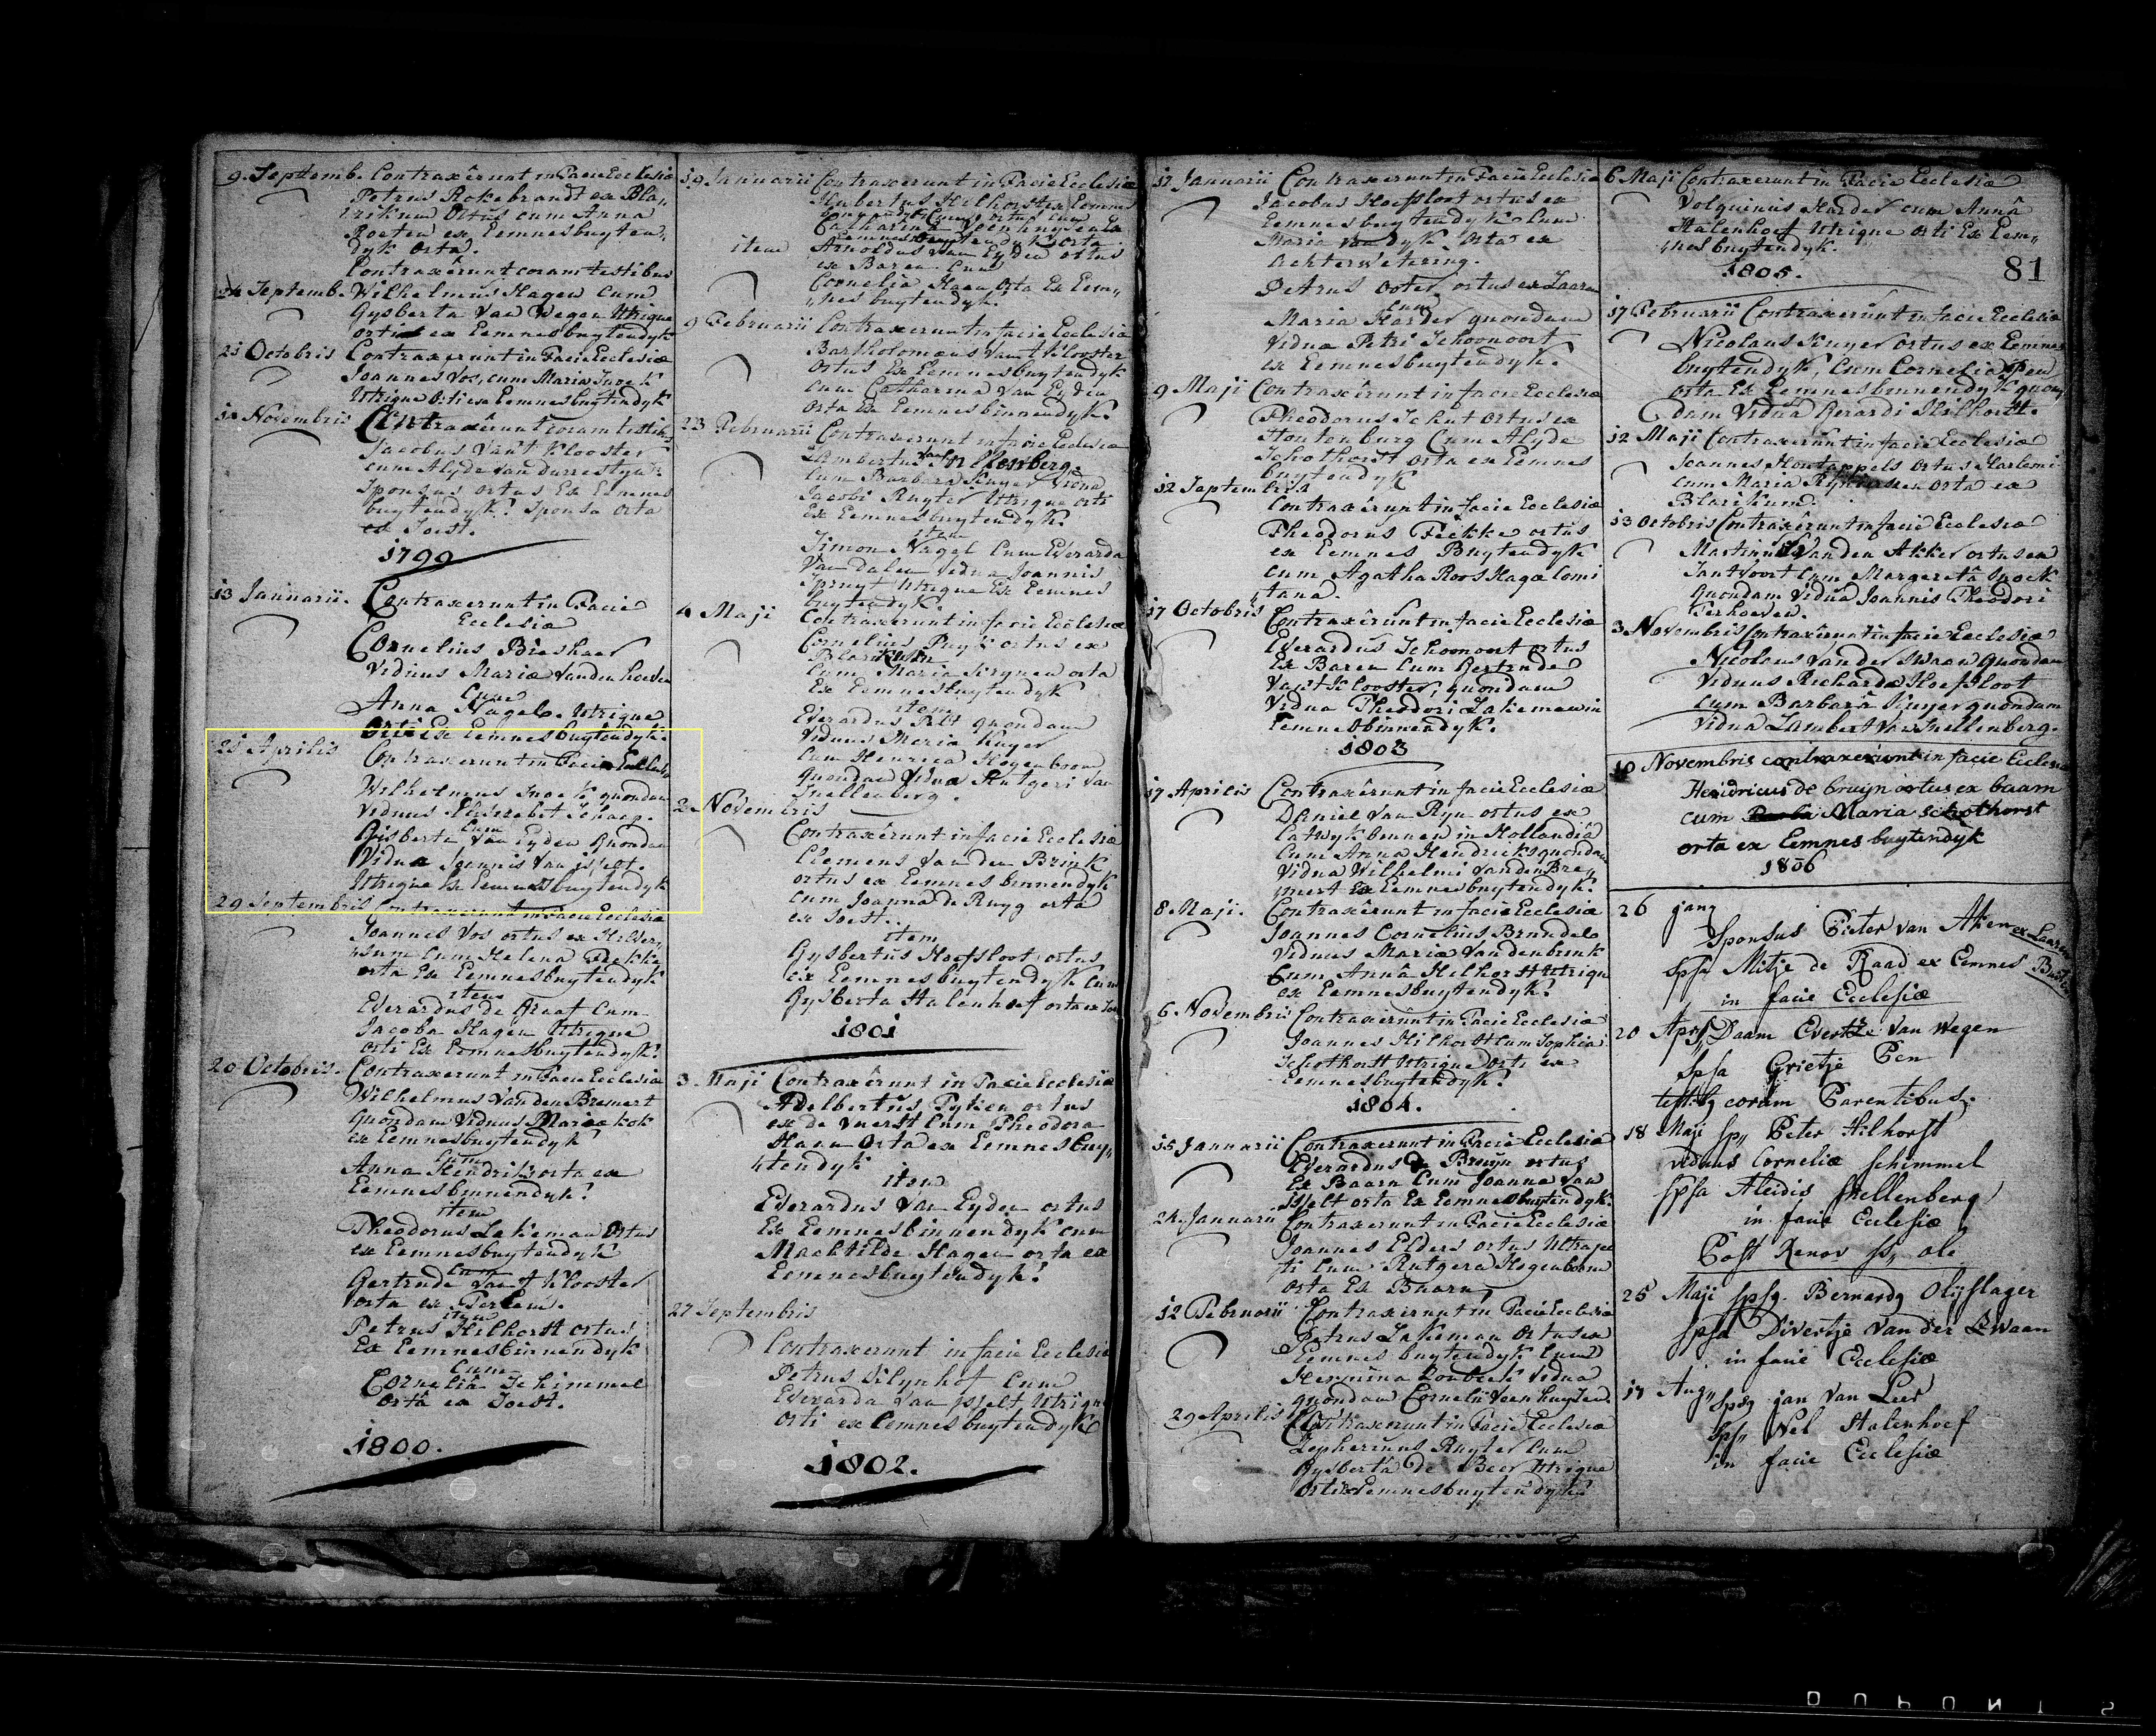 9. Septemb. Contraxêrunt in Facie Ecclesiæ
Petrus Rokebrandt ex Bla„
rikum Ortus cum Anna
Roeten ex Eemnesbuyten„
dyk Orta.
Contraxêrunt coram testibus
24 Septemb. Wilhelmus Hagen cum
Gysberta Van Wegen Utrique
orti ex Eemnesbuytendyk
21 Octobris Contraxerunt in Facie Ecclesiæ
Joannes Vos, cum Maria Snoek
Utrique Orti ex Eemnesbuytendyk
11 Novembris Contraxêrunt coram testib:
Jacobus Van't Klooster
cum Alyde Van
Sponsus ortus Ex Eemnes
buytendyk. Sponsa Orta
ex Soest.
1799
13 Januarii. Contraxerunt in Facie
Ecclesiæ
Cornelius Bieshaer
Viduus Mariæ Vanden
Cum
Anna Nagel. Utrique
Orti Ex Eemnesbuytendyk.
28 Aprilis Contraxerunt in Facie Ecclesiæ
Wilhelmus Snoek quondam
Viduus Elisabet Schaap.
Cum
Gisberta Van Eyden Quondam
Vidua Joannis Van ijselt.
Utrique Ex Eemnesbuytendyk
29 Septembris Contraxerunt in Facie Ecclesiæ
Joannes Vos ortus ex Hilver„
„sum Cum Helena Fekke
orta Ex Eemnesbuytendyk
item
Everardus de Graaf Cum
Jacoba Hagen Utrique
orti Ex Eemnesbuytendyk.
20 Octobris. Contraxerunt in Facie Ecclesiæ
Wilhelmus Vanden Bremert
quondam Viduus Mariæ Kok
ex Eemnesbuytendyk
Cum
Anna Hendriks orta ex
Eemnesbinnendyk.
item
Theodorus Lakeman Ortus
ex Eemnesbuytendyk
Cum
Gertrude Van't Klooster
orta ex
item
Petrus Hilhorst ortus
Ex Eemnesbinnendyk
Cum
Cornelia Schimmel
orta ex Soest.
1800.
19 Januarii Contraxerunt in Facie Ecclesiæ
Hubertus Hilhorst ex Eemnes
ortus cum
Catharina Veenhuysen
Eemnesbuytendyk orta
item Arnoldus Van Eyden ortus
ex Baren Cum
Cornelia Haen Orta Ex Eem„
„nes buytendyk.
9 Februarii Contraxerunt in facie Ecclesiæ
Bartholomæus Van't Klooster
ortus Ex Eemnesbuytendyk
cum Catharina Van Eyden
orta Ex Eemnesbinnendyk.
23 Februarii Contraxerunt in facie Ecclesiæ
Lambertus Van Snellenberg
Cum Barbara Kuyer vidua
Jacobi Ruyter Utrique orti
Ex Eemnesbuytendyk.
item
Simon Nagel Cum Everarda
Van Dalen Vidua Joannis
Spruyt Utrique Ex Eemnes
buytendyk.
4 Maji Contraxerunt in facie Ecclesiæ
Cornelius Puyk ortus ex
Blarikum
Cum Maria orta
Ex Eemnesbuytendyk
item
Everardus Pelt quondam
Viduus Maria Kuyer
Cum Henrica Hogenboom
Quondam Vidua Rutgeri Van
Snellenberg.
2 Novembris
Contraxêrunt in facie Ecclesiæ
Clemens Vanden Brink
ortus ex Eemnes binnendyk
cum Joanna de Ruyg orta
ex Soest.
item
Gysbertus Hoefsloot ortus
ex Eemnesbuytendyk Cum
Gysberta Stalenhoef orta ex
1801
3 Maji Contraxêrunt in Facie Ecclesiæ
Adelbertus Tyken ortus
ex de Vuerst Cum Theodora
Haen Orta ex Eemnesbuy„
„tendyk
item
Everardus Van Eyden ortus
Ex Eemnesbinnendyk cum
Machtilde Hagen orta ex
Eemnesbuytendyk.
27 Septembris
Contraxerunt in facie Ecclesiæ
Petrus Vilynhof Cum
Everarda Van ijselt Utrique
Orti ex Eemnesbuytendyk
1802.
17 Januarii Contraxerunt in Facie Ecclesiæ
Jacobus Hoefsloot ortus ex
Eemnesbuytendyk Cum
Maria Van Dyk Orta ex
Achterwetering.
Petrus Ooter ortus ex Laaren
Cum
Maria Harder quondam
Vidua Petri Schoonoort
ex Eemnesbuytendyk.
9 Maji Contraxêrunt in facie Ecclesiæ
Theodorus Schut Ortus ex
Houtenburg Cum Alyde
Schothorst orta ex Eemnes
buytendyk
12 Septembris
Contraxêrunt in facie Ecclesiæ
Theodorus Fekke ortus
ex Eemnes Buytendyk
cum Agatha Roos Hagæ Comi
tana.
17 Octobris Contraxêrunt in facie Ecclesiæ
Everardus Schoonoort ortus
Ex Baren Cum Gertrude
Van't Klooster, quondam
Vidua Theodori Lakeman in
Eemnesbinnendyk.
1803
17 Aprilis Contraxêrunt in facie Ecclesiæ
Daniel Van Ryn ortus ex
Catwyk binnen in Hollandiâ
Cum Anna Hendriks quondam
Vidua Wilhelmi Vanden Bre„
„mert Ex Eemnesbuytendyk.
8 Maji. Contraxêrunt in facie Ecclesiæ
Joannes Cornelius Brundel
Viduus Mariæ Vandenbrink
Cum Annâ Hilhorst Utrique
ex Eemnesbuytendyk.
6 Novembris Contraxerunt in Facie Ecclesiæ
Joannes Hilhorst Cum Sophia
Schothorst Utrique Orti ex
Eemnesbuytendyk.
1804.
15 Januarii Contraxerunt in Facie Ecclesiæ
Everardus de Bruyn ortus
Ex Baarn Cum Joanna Van
ijselt orta Ex Eemnesbuytendyk.
24. Januarii Contraxerunt in Facie Ecclesiæ
Joannes Elders ortus Ultraje
ti Cum Rutgera Hogenboom
Orta Ex Baarn
12 Februarii Contraxêrunt in Facie Ecclesiæ
Petrus Lakeman Ortus ex
Eemnes buytendyk Cum
Hermina Vidua
quondam Cornelii Veenhuysen
29 Aprilis Contraxerunt in Facie Ecclesiæ
Zepherinus Ruyter Cum
Gysberta de Beer Utrique
Orti ex Eemnesbuytendyk.
6 Maji Contraxerunt in Facie Ecclesiæ
Volquinus Harder cum Annâ
Stalenhoef Utrique Orti Ex Eem„
„nesbuytendyk.
1805.
81
17 Februarii Contraxêrunt in facie Ecclesiæ
Nicolaus Kuyer Ortus ex Eemnes
buytendyk, Cum Cornelia Pen
orta Ex Eemnesbinnendyk quon
dam Viduâ Gerardi Hilhorst.
12 Maji Contraxêrunt in facie Ecclesiæ
Joannes Houtappels Ortus Harlemi
cum Maria orta ex
Blarikum.
13 Octobris Contraxêrunt in facie Ecclesiæ
Martinus Vanden Akker ortus ex
Santvoort Cum Margeretâ Snoek
Quondam Viduâ Joannis Theodori
Terhoeven.
3 Novembris Contraxêrunt in facie Ecclesiæ
Nicolaus Vander Swaan quondam
Viduus Richardæ Hoefsloot
Cum Barbarâ Kuyer quondam
Vidua Lambert Van Snellenberg.
10 Novembris contraxerunt in facie Ecclesiæ
Hendricus de bruijn ortus ex baarn
cum Maria schothorst
orta ex Eemnes buytendyk
1806
26 janu
Sponsus Pieter van Aken ex Laaren
spsa Mitje de Raad ex Eemnes Buyten
in facie Ecclesiæ
20 Apr Sps, Daam Evertze van Wegen
Spsa Grietje Pen
testib coram Parentibus.
18 Maji sp,, Peter Hilhorst
viduus Corneliæ Schimmel
spsa Aleidis Snellenberg
in facie Ecclesiæ
Post Renov
25 Maji spsq. Bernardq Olijslager
spsa Divertje van der Zwaan
in facie Ecclesiæ
17 Aug,, spsq jan van Leer
Sps,, Nel Stalenhoef
in facie Ecclesiæ